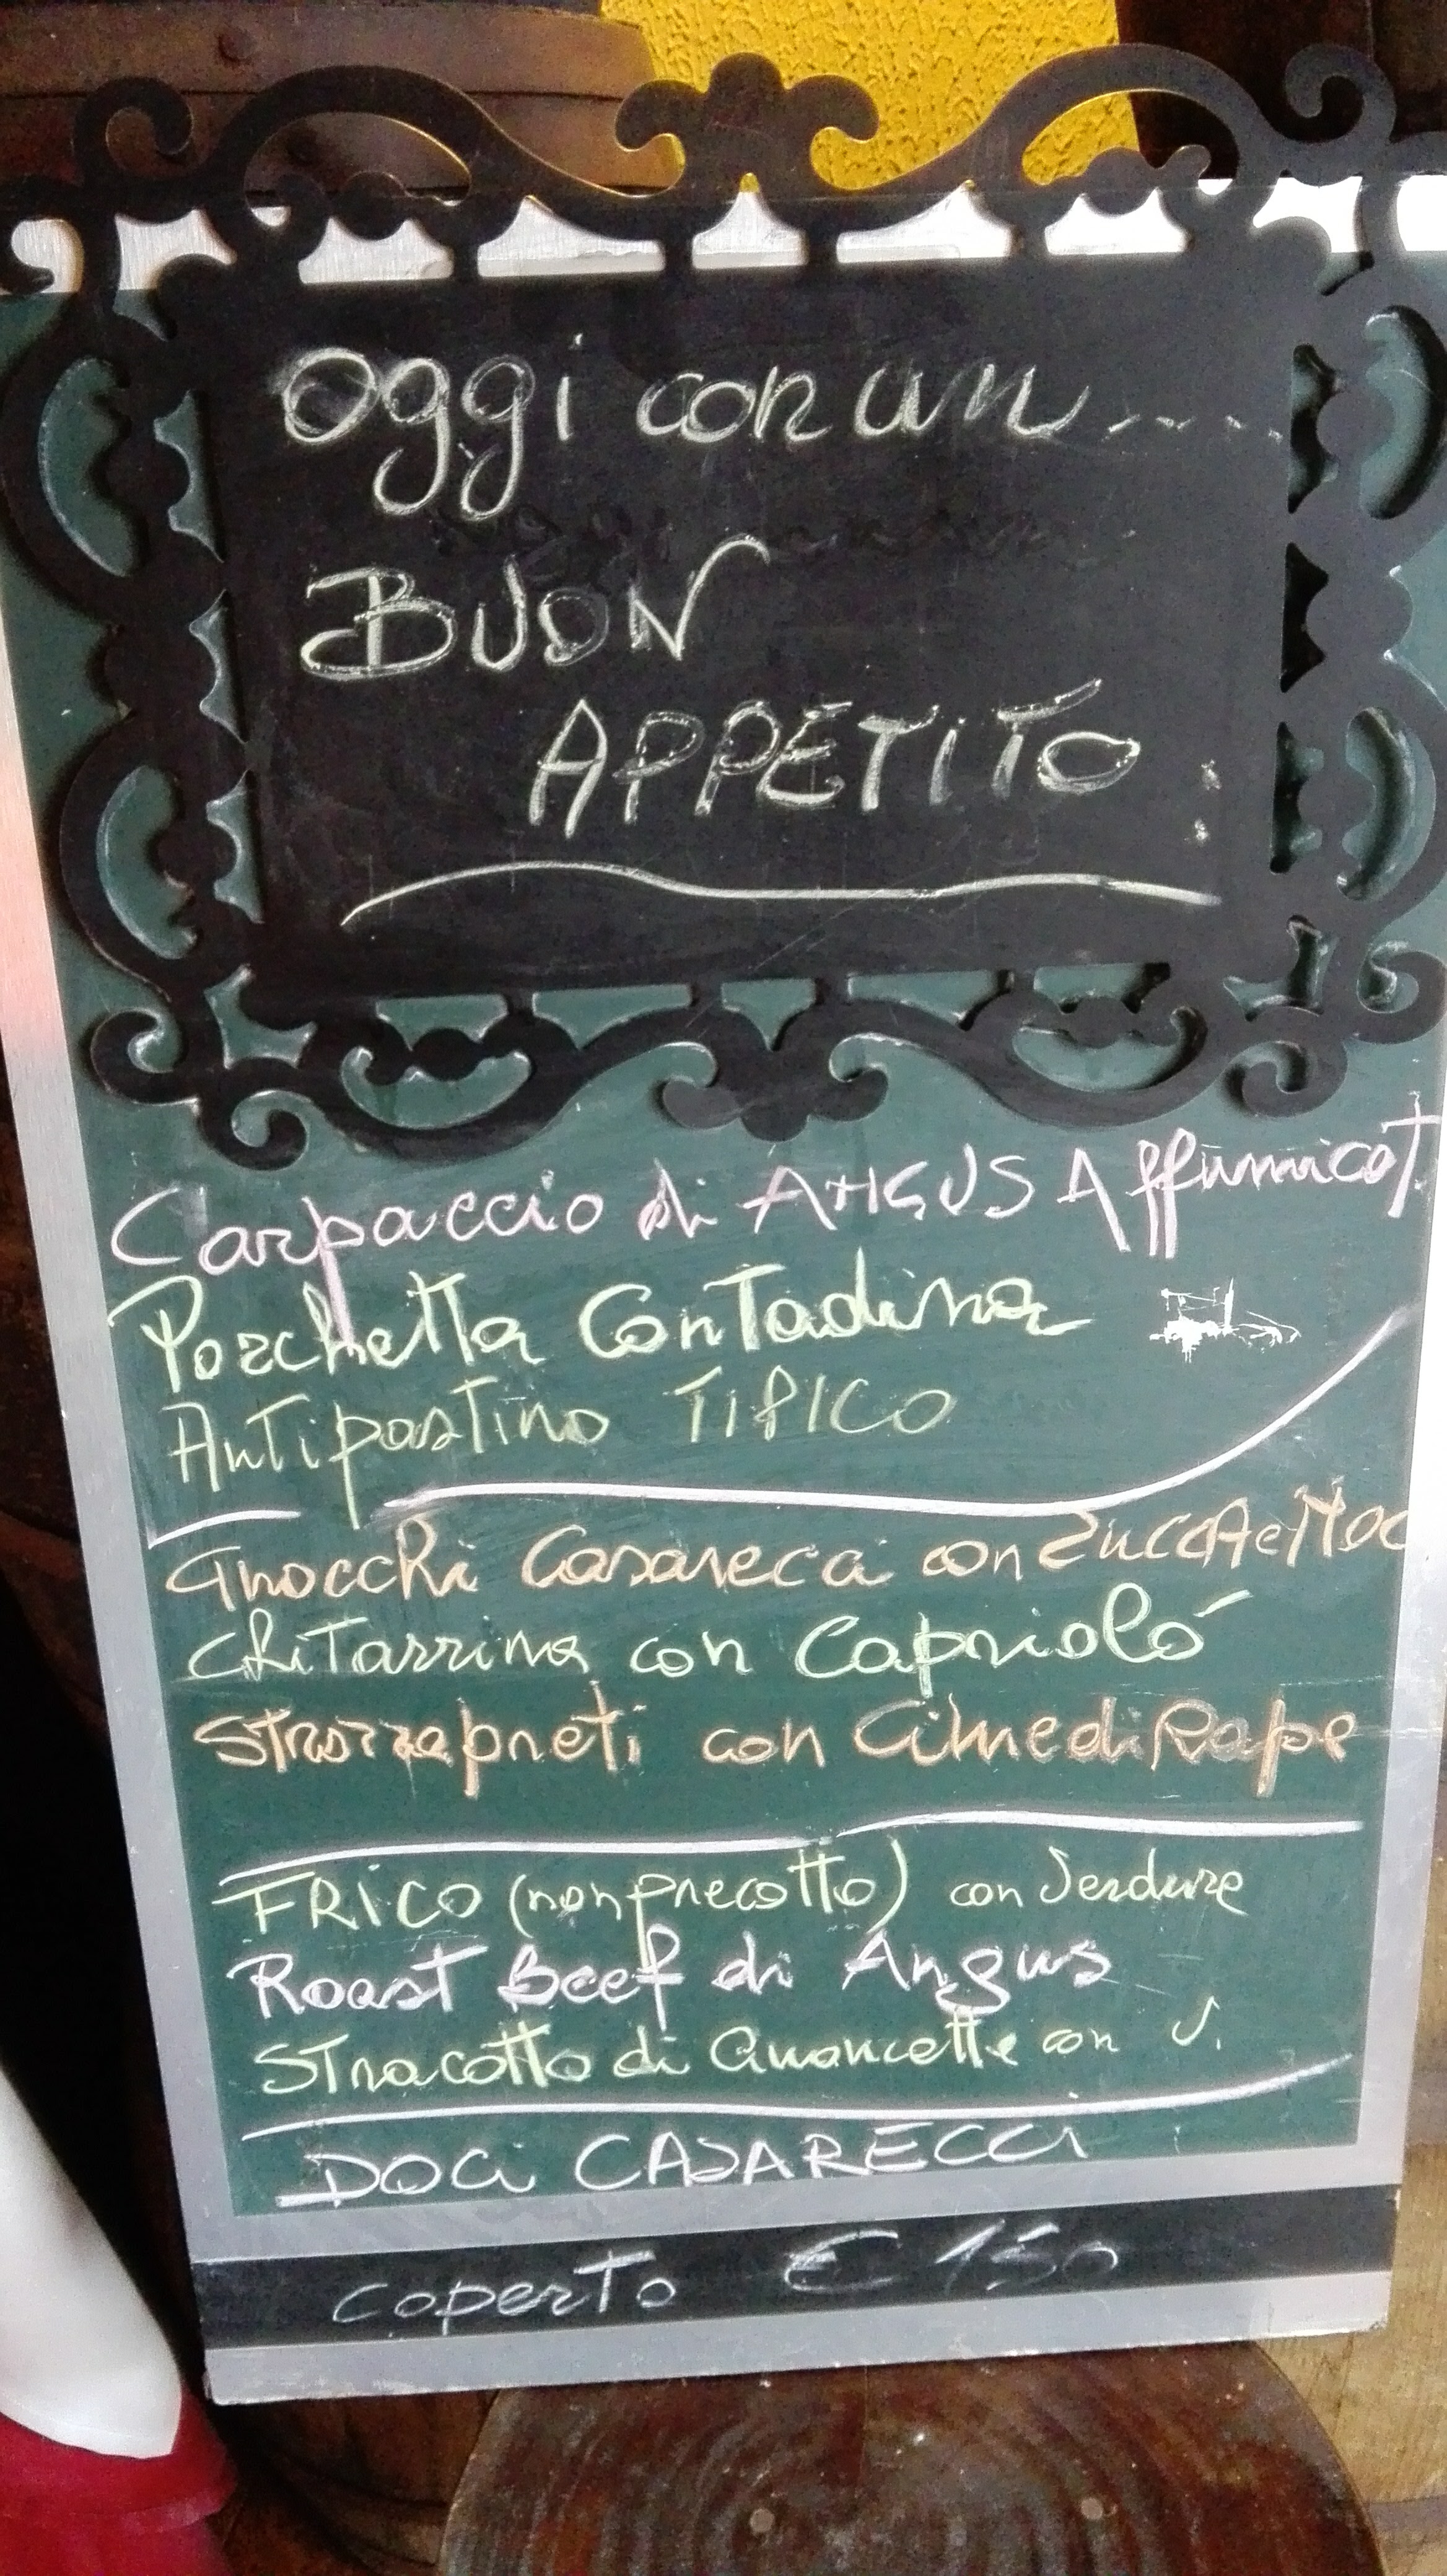 Oggi con un.....
BUON
APPETITO.
Carpaccio di ANGUS Affumicat
Porchetta Contadina
Antipastino TIPICO
Gnocchi Casareci con ZUCCA e Noc
Chitarrina con Capriolo
Strozzapreti con Cime di Rape
FRICO (non precotto) con Verdure
Roast Beef di Angus
Stracotto di Guancette con V.
DOCi CASARECCi
coperto € 1,50